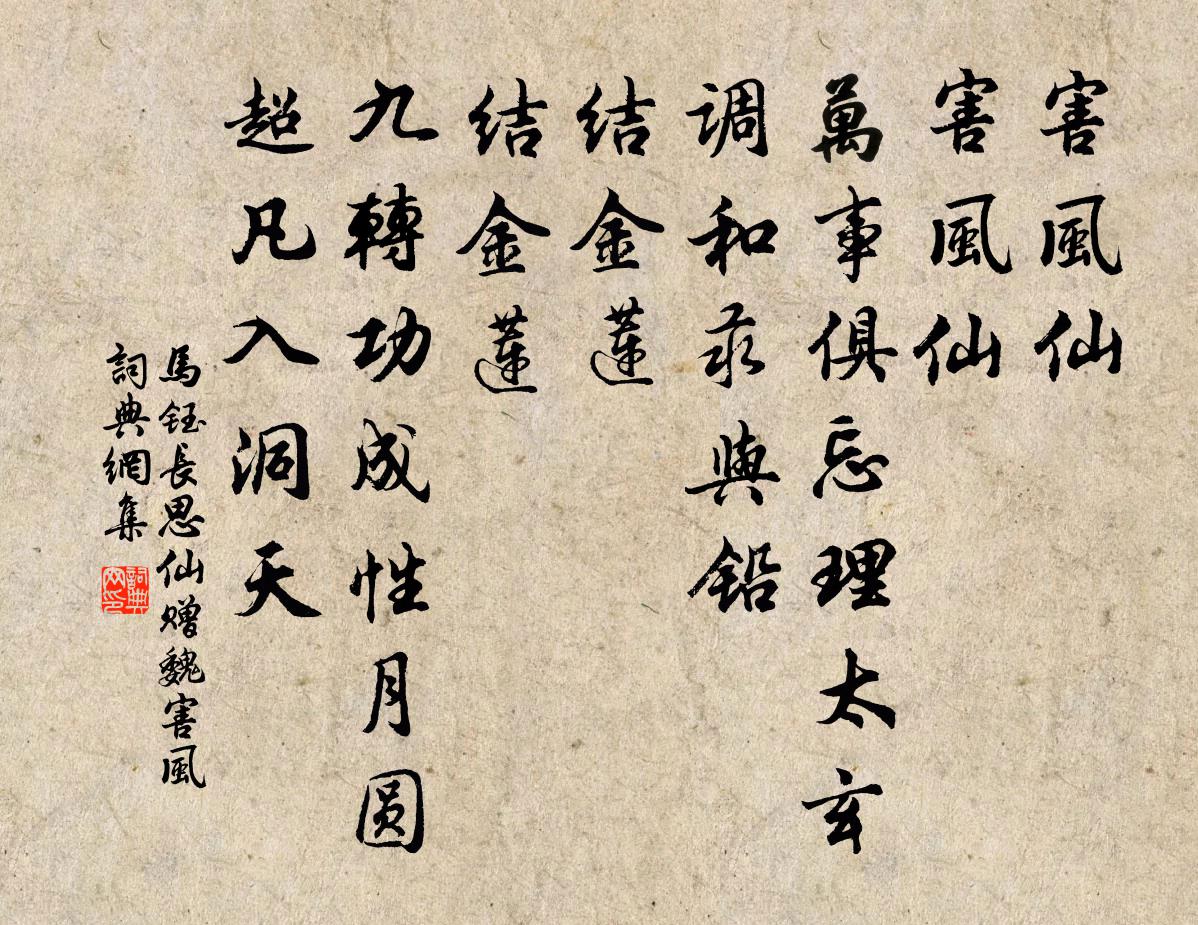 害風仙
害風仙
萬事俱忘理太玄
调和汞與铅
结金蓮
结金蓮
九轉功成性月圆
超凡入洞天
馬钰長思仙赠魏害風
詞典網集
詞典网印